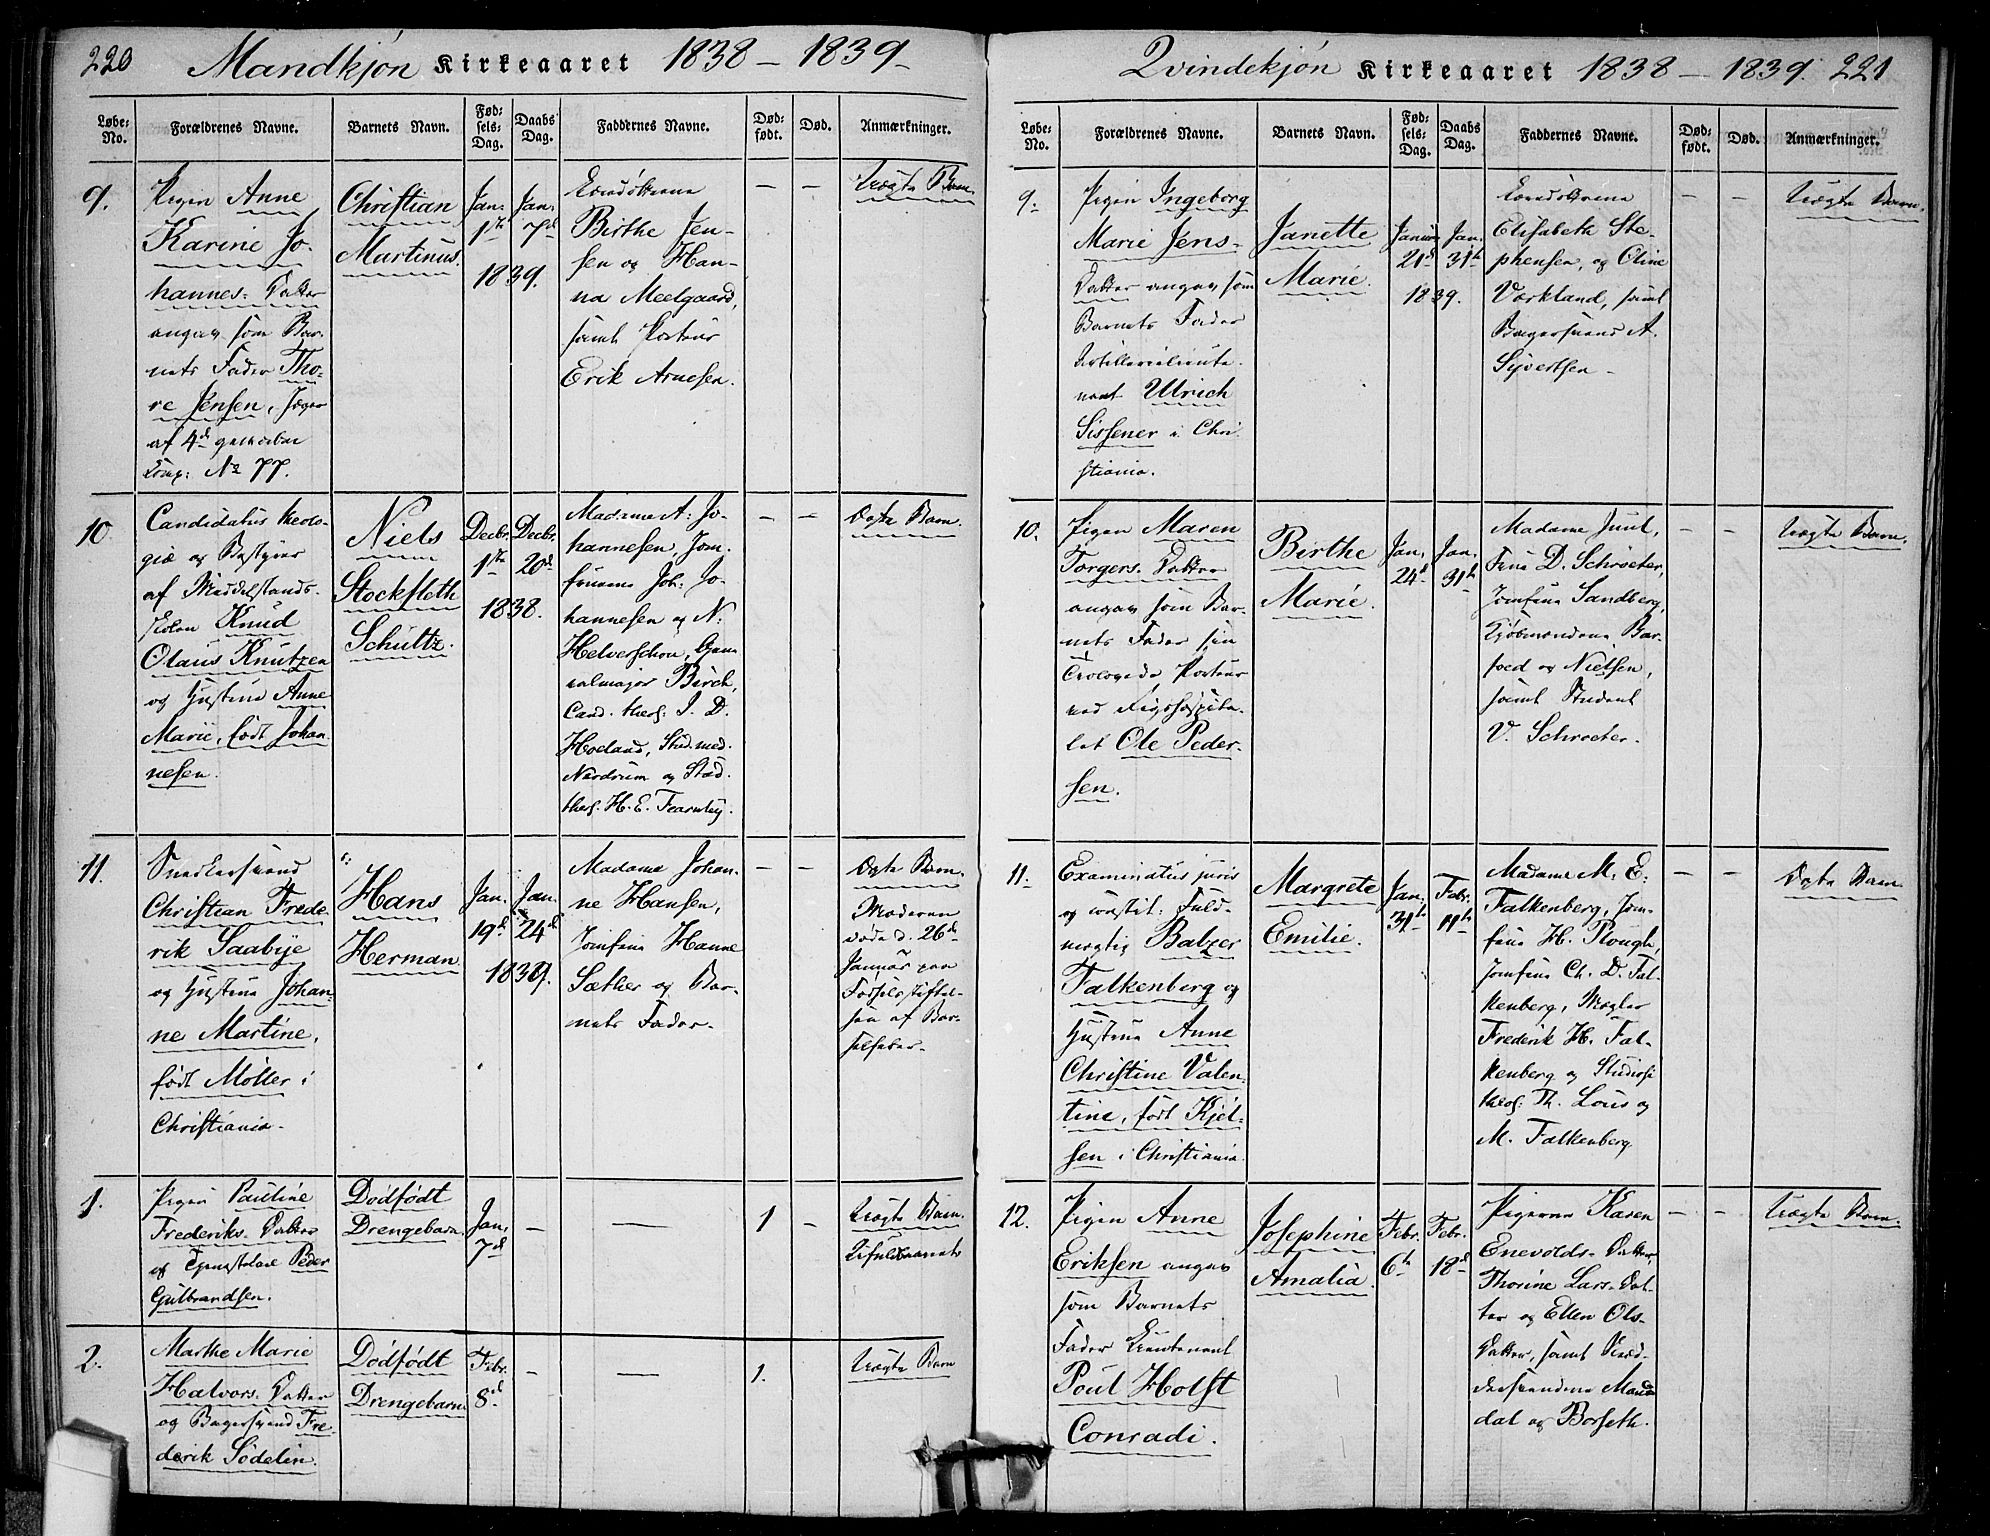 220
Mandkjøn Kirkeaaret 1838 – 1839 –
Løbe-No.
Forældrenes Navne.
Barnets Navn.
Fødsels-Dag.
Daabs Dag.
Faddernes Navne.
Død-født.
Død.
Anmærkninger.
9.
Pigen Anne
Karine Jo-
hannes-Datter
angav som Bar-
nets Fader Tho-
re Jensen, Jæger
af 4de geworbne
Comp: No 77.
Christian
Martinus.
Jan. 1te
Jan. 7de
1839.
Birthe Jen-
sen og Han-
na Meelgaard,
samt Porteur
Erik Arnesen.
– –
Uægte Barn
10.
Candidatus theolo-
giæ og Bestyrer
af Middelstands-
skolen Knud
Olaus Knutzen
og Hustrue Anne
Marie, født Johan-
nesen.
Niels
Stockfleth
Schultz.
Decbr. 1te
Decbr. 20de
1838.
Madame A: Jo-
hannesen, Jom-
fruerne Joh: Jo-
hannesen og N:
Helverschou, Gene-
ralmajor Birch,
Cand. theol: I. D.
Hoeland, Stud. med.
Nordrum og Stud.
theol. H. E. Fearnley.
– –
Ægte Barn.
11.
Snedkersvend
Christian Frede-
rik Saabye
og Hustrue Johan-
ne Martine,
født Möller i
Christiania.
Hans
Herman
Jan. 19de
Jan. 24de
1839.
Madame Johan-
ne Hansen,
Jomfrue Hanne
Sæther og Bar-
nets Fader.
– –
Ægte Barn.
Moderen
døde d. 26de
Januar paa
Fødselsstiftel-
sen af Bar-
selfeber.
1.
Pigen Pauline
Frederiks-Datter
og Peder
Gulbrandsen.
Dødfødt
Drengebarn
Jan. 7de
– —
1 –
Uægte Barn.
Ufuldbaaret
2.
Marthe Marie
Halvors-Datter
og Bagersvend Fre-
derik Södelin.
Dødfødt
Drengebarn
Febr. 8de
– —
1.
Uægte Barn
Qvindekjøn Kirkeaaret 1838 – 1839. 221
Løbe-No.
Forældrenes Navne.
Barnets Navn.
Fødsels-Dag.
Daabs Dag.
Faddernes Navne.
Død-født.
Død.
Anmærkninger.
9.
Pigen Ingeborg
Marie Jens-
Datter angav som
Barnets Fader
Artillerielieute-
nant Ulrich
Sissener i Chri-
stiania.
Janette
Marie.
Januar 21de
Jan. 31te
1839.
Elisabeth Ste-
phensen, og Oline
Værkland, samt
Bagersvend A.
Syvertsen –
– –
Uægte Barn.
10.
Pigen Maren
Torgers-Datter
angav som Bar-
nets Fader sin
Trolovede Porteur
ved Rigshospita-
let Ole Peder-
sen.
Birthe
Marie.
Jan. 24de
Jan. 31te
Madame Juul,
Frue D. Schroeter,
Jomfrue Sandberg,
Kjøbmændene Bar-
foed og Nielsen,
samt Student
V. Schroeter.
– –
Uægte Barn.
11.
Examinatus juris
og constit: Fuld-
mægtig Balzer
Falkenberg og
Hustrue Anne
Christine Valen-
tine, født Kjel-
sen i Christiania.
Margrete
Emilie.
Jan. 31te
Febr. 11te
Madame M. E:
Falkenberg, Jom-
frue H. Plough,
Jomfrue Ch. D. Fal-
kenberg, Mægler
Frederik H. Fal-
kenberg og Studiosi
theol: Th. Lous og
M. Falkenberg
– –
Ægte Barn.
12.
Pigen Anne
Eriksen angav
som Barnets
Fader Lieutenant
Poul Holst
Conradi.
Josephine
Amalia.
Febr. 6te
Febr. 18de
Pigerne Karen
Enevolds-Datter,
Thorine Lars-Dat-
ter og Ellen Ols-
Datter, samt Sned-
kersvendene Man-
dal og Borseth.
– –
Uægte Barn.